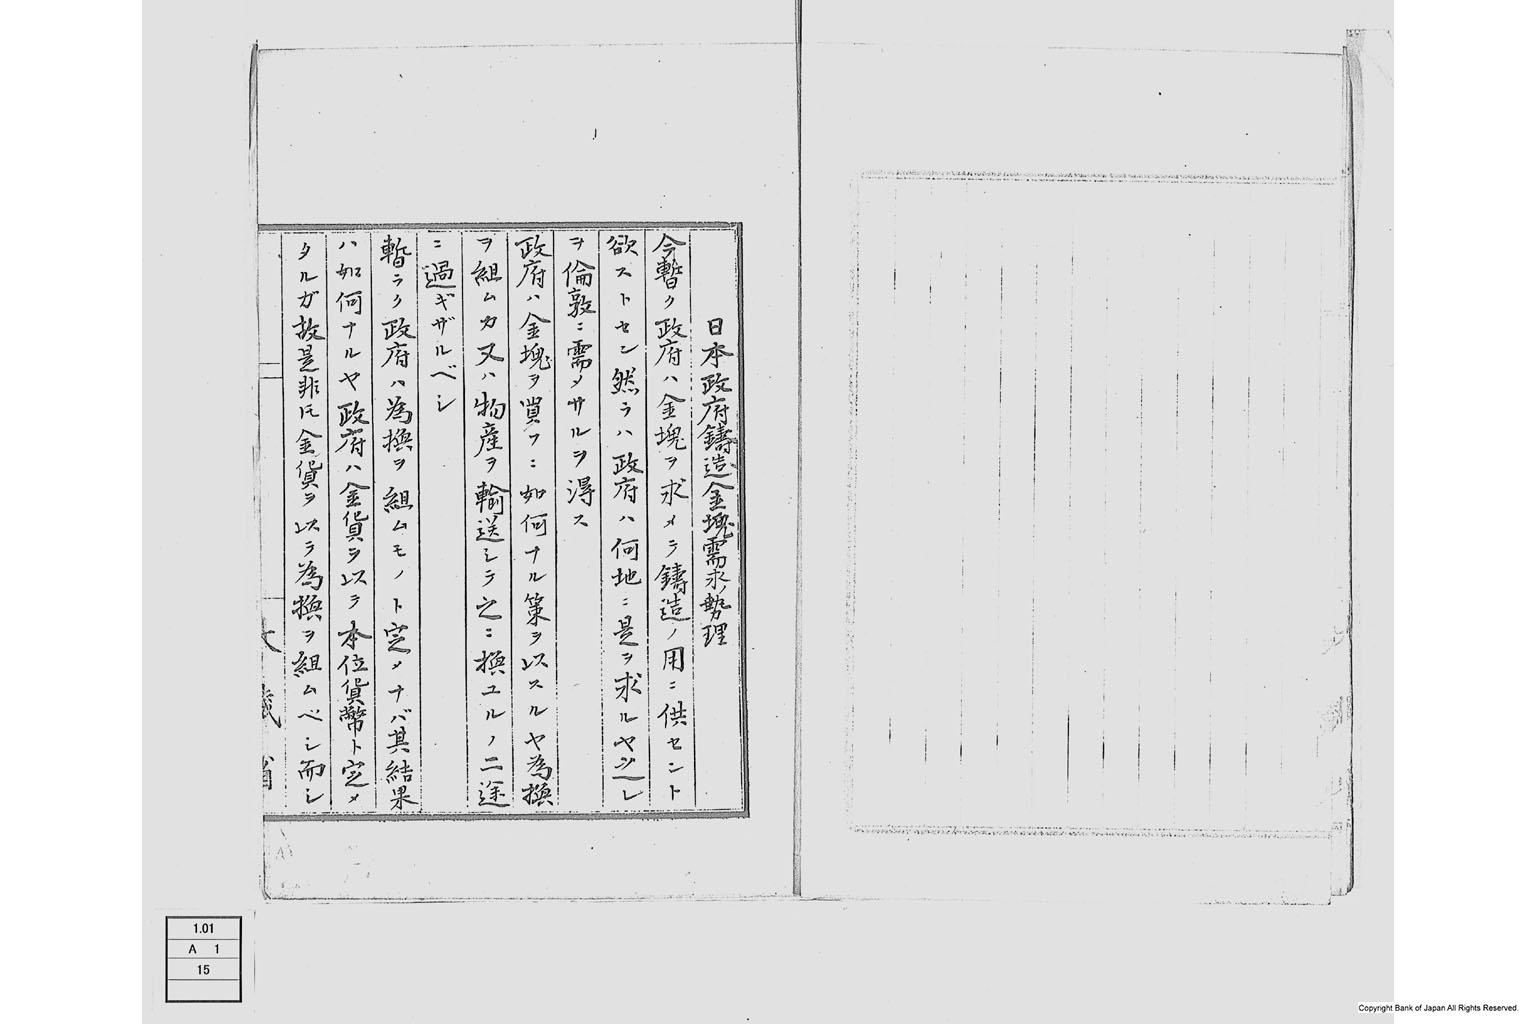 日本政府鋳造金塊需求ノ勢理
今暫ク政府ハ金塊ヲ求メテ鋳造ノ用ニ供セント
欲ストセン然ラハ政府ハ何地ニ是ヲ求ルヤ必レ
ヲ倫敦ニ需メサルヲ得ス
政府ハ金塊ヲ買フニ如何ナル策ヲ以スルヤ為換
ヲ組ムカ又ハ物産ヲ輸送シテ之ニ換ユルノ二途
ニ過ギザルベシ
暫ラク政府ハ為換ヲ組ムモノト定メナバ其結果
ハ如何ナルヤ政府ハ金貨ヲ以テ本位貨幣ト定メ
タルガ故是非氏金貨ヲ以テ為換ヲ組ムベシ而シ
大蔵省
1.01
A 1
15
Copyright Bank of Japan All Rights Reserved.